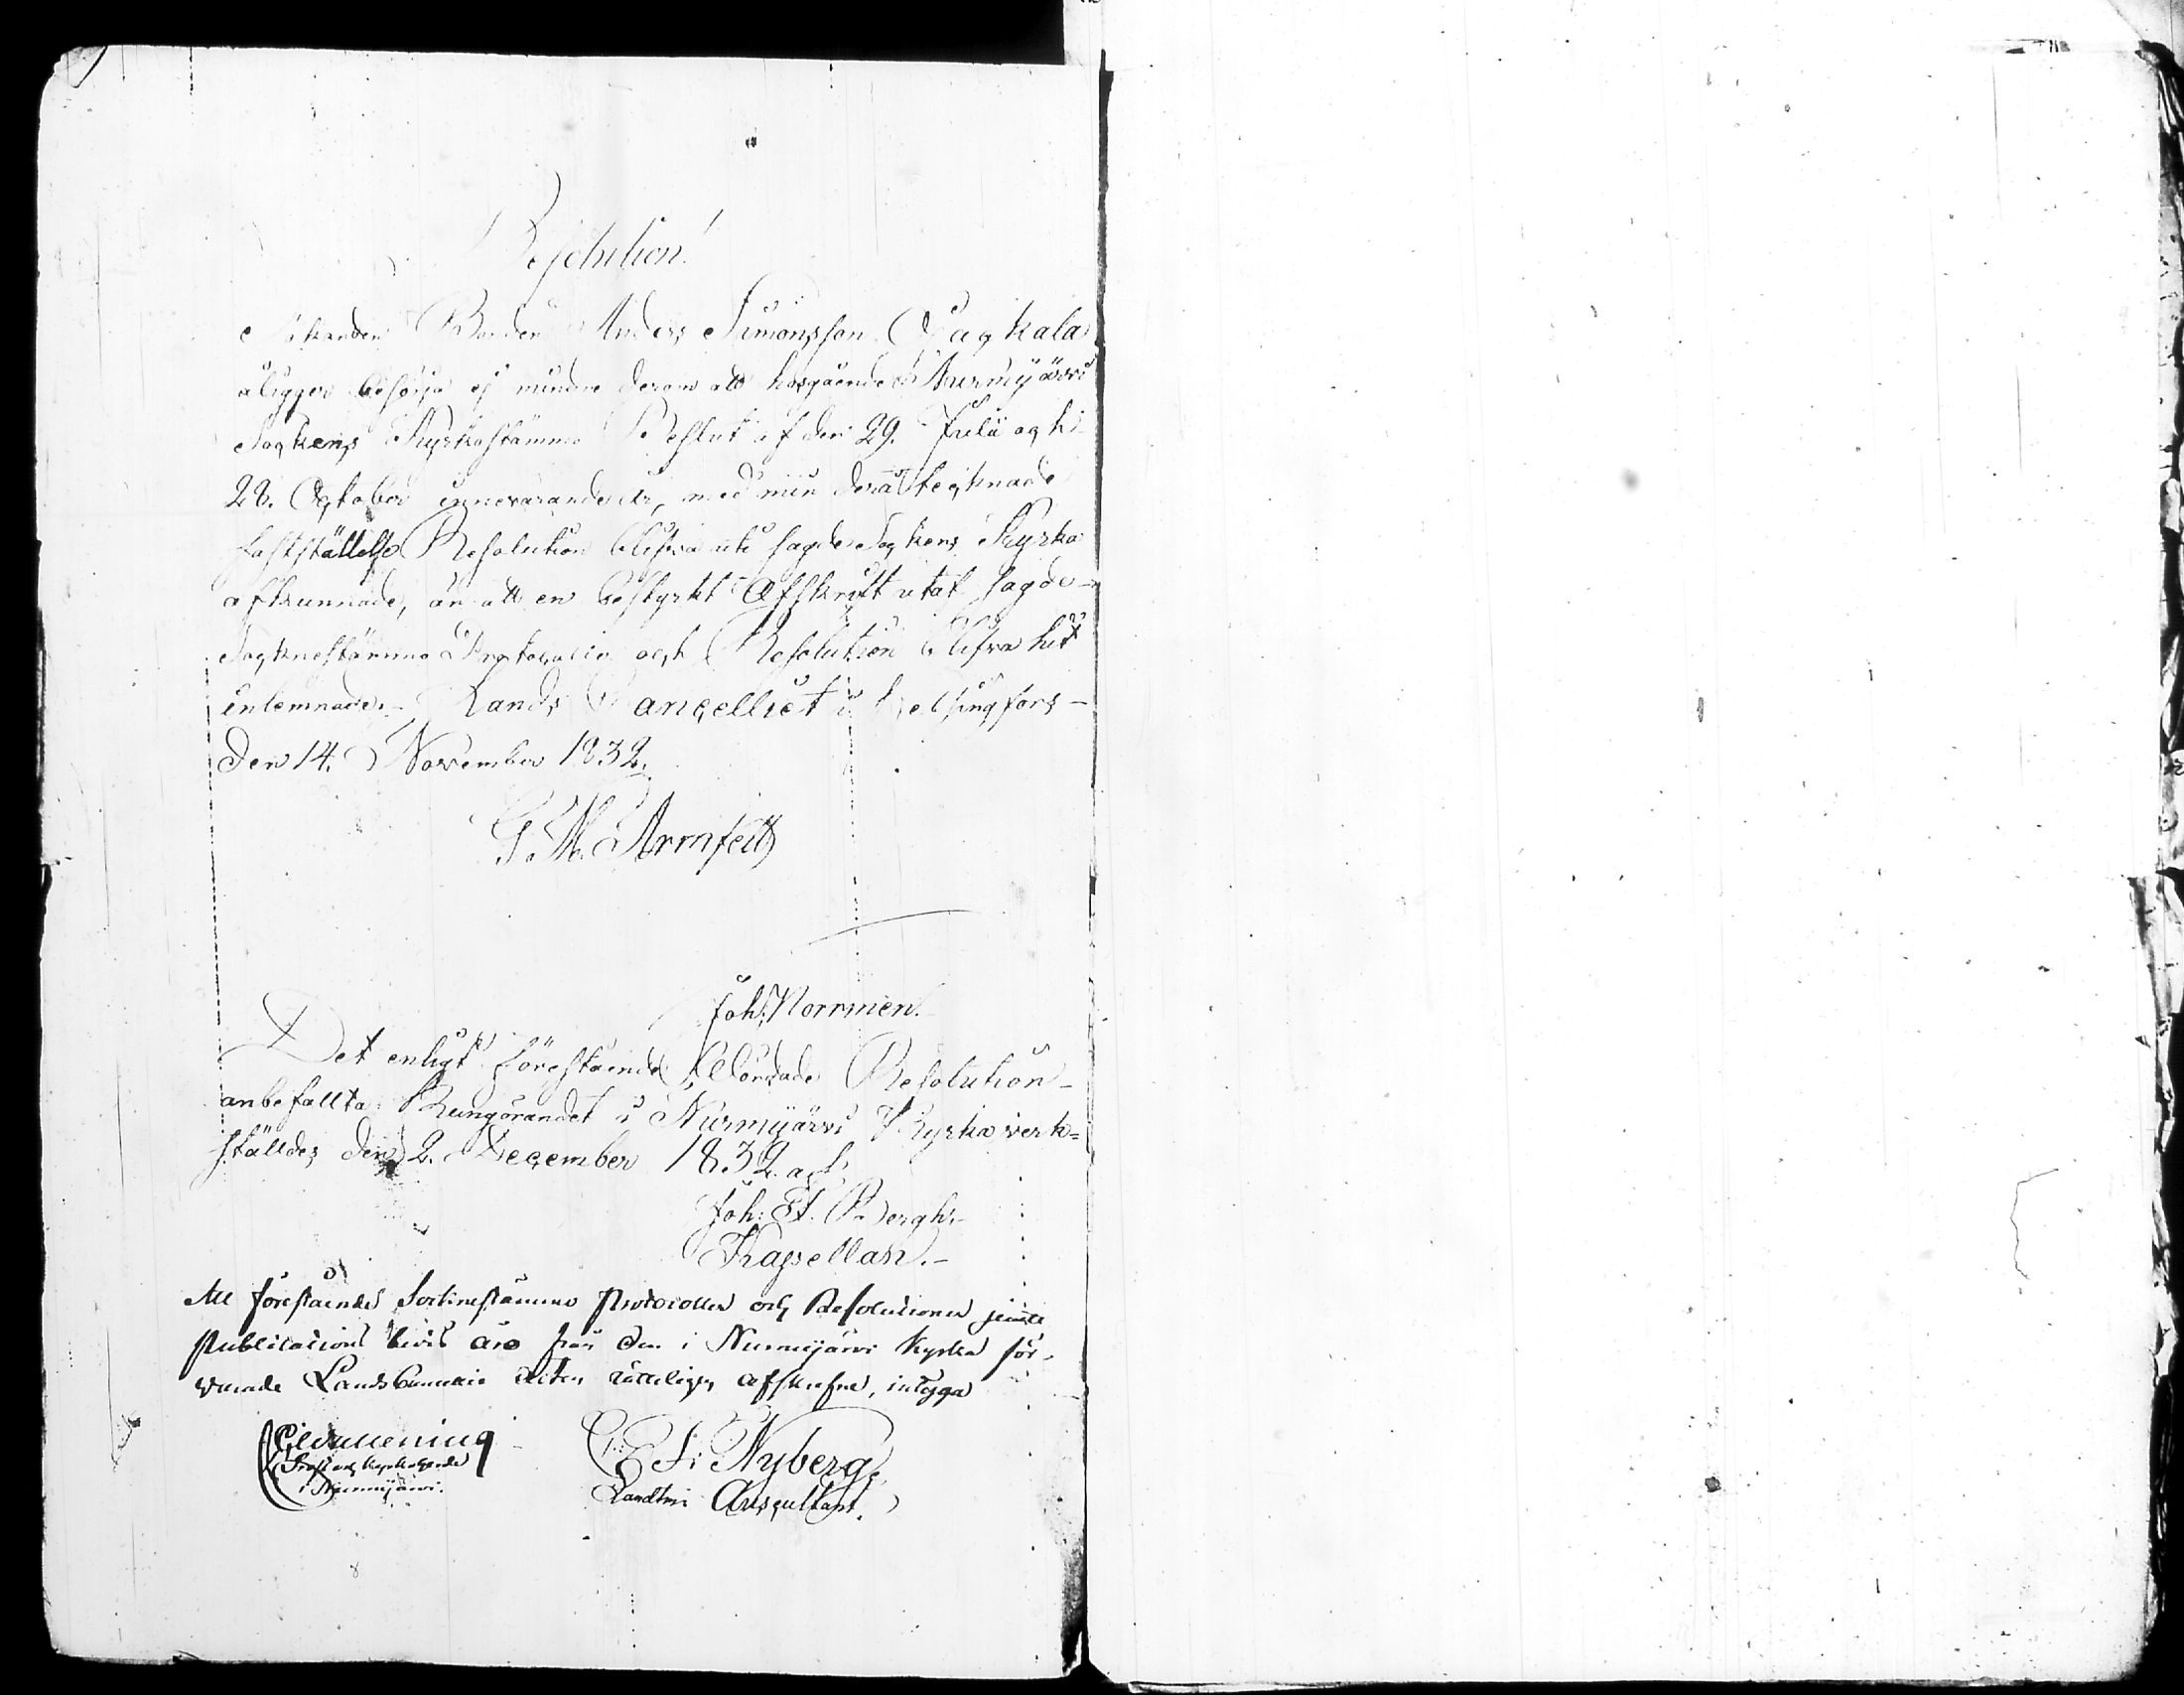 Resolution!
Sökanden Bonden Anders Simonsson Packala
åligger besörja ej mindre derom att hosgående Nurmijärvi
Sockens Kyrkostämmo Beslut af den 29. Julii och
28. October innevarande år, med min derå tecknade
fastställelse Resolution blifva uti sagde Sockens Kyrka
afkunnade, än att en bestyrkt Afskrift utaf sagde
Socknestämmo Protocoller och Resolution blifva hit
inlemnade. Lands Cancelliet i Helsingfors –
den 14. November 1832.
G. M. Armfelt
Joh. Norrmén.
Det enligt förestående Resolution
anbefallta Kungörandet i Nurmijärvi Kyrka verk=
ställdes den 2. December 1832. af
Joh. Bergh.
Kapellan. –
Att förestående Socknestämmo Protocoller och Resolutioner jemte
Publications bevis äro från den i Nurmijärvi Kyrka för-
varade acten rätteligen afskrefne, intyga
Prost och Kyrkoherde
i Nurmijärvi.
Nyberg
Landtm: Auscultant.